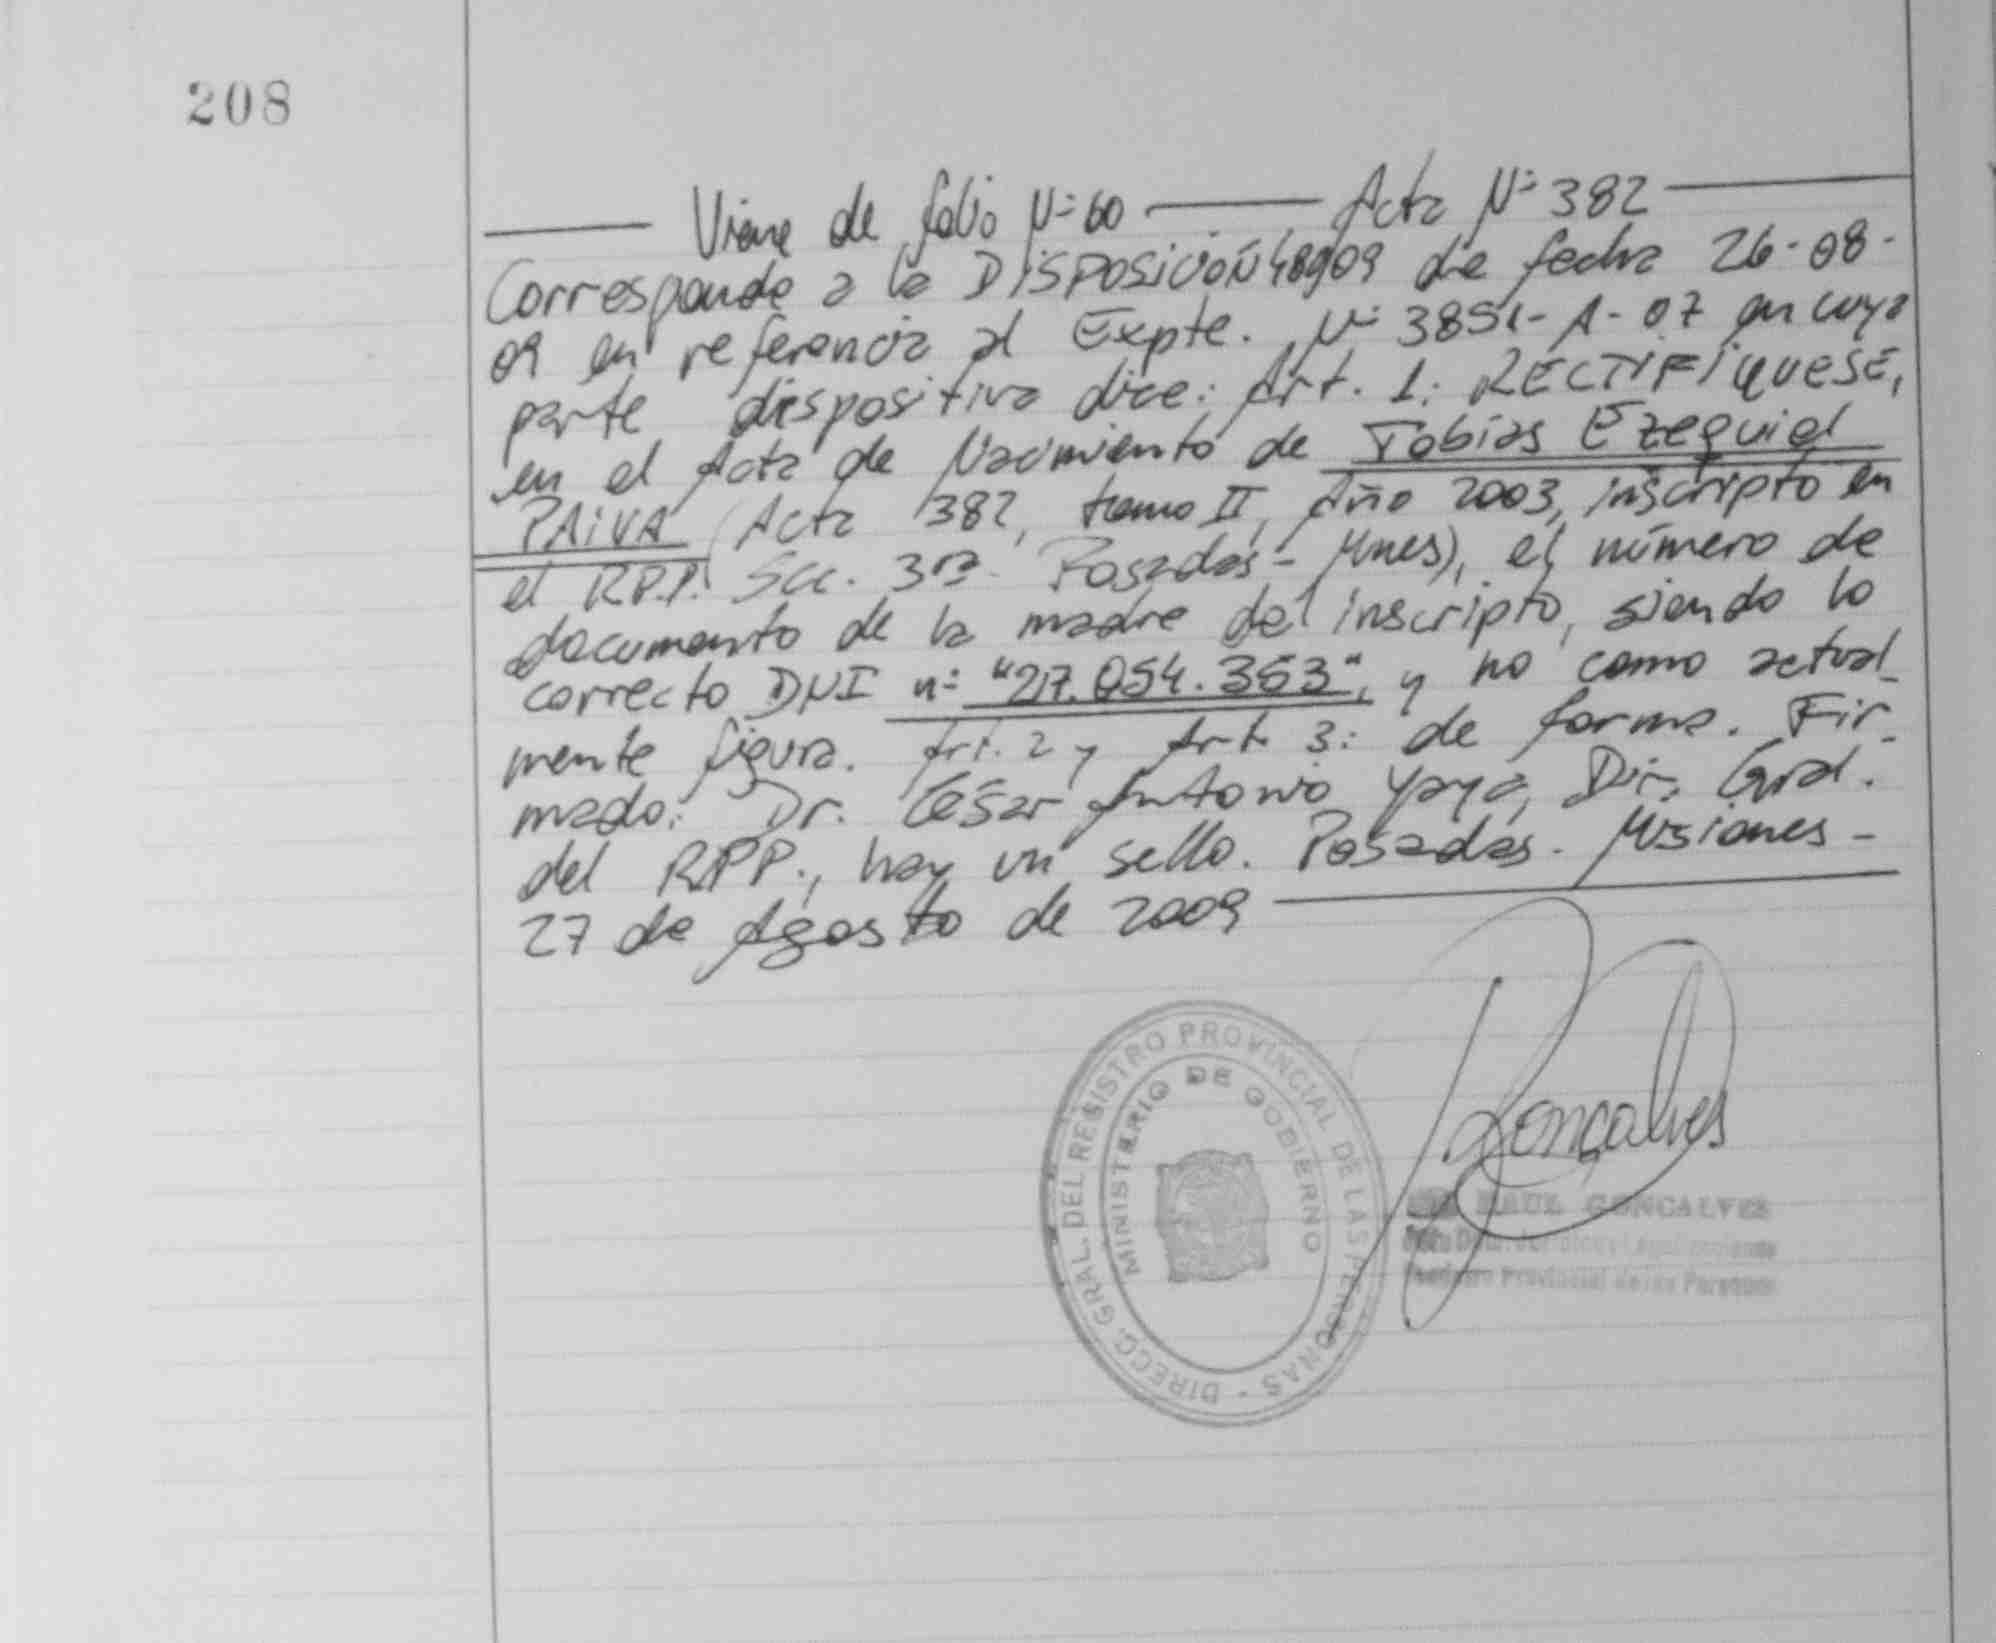 208
Viene de folio Nº 60 Acta Nº 382
Corresponde a la DISPOSICIÓN de fecha 26-08-
09 en referencia al Expte. Nº 3851-A-07 en cuya
parte dispositiva dice: Art. 1: RECTIFIQUESE,
en el Acta de Nacimiento de Tobías Ezequiel
PAIVA (Acta 382, tomo II, Año 2003, inscripto en
el R.P.P. Scc. 3ra. Posadas - Mnes), el número de
documento de la madre del inscripto, siendo lo
correcto DNI nº "27.054.353", y no como actual_
mente figura. Art. 2 y Art. 3: de forma. Fir_
mado: Dr. César Antonio Yaya, Dir. Gral.
del RPP., hay un sello. Posadas. Misiones -
27 de Agosto de 2009
DIRECC. GRAL. DEL REGISTRO PROVINCIAL DE LAS PERSONAS -
MINISTERIO DE GOBIERNO
Gonçalves
RAUL GONCALVES
Provincial de las Personas